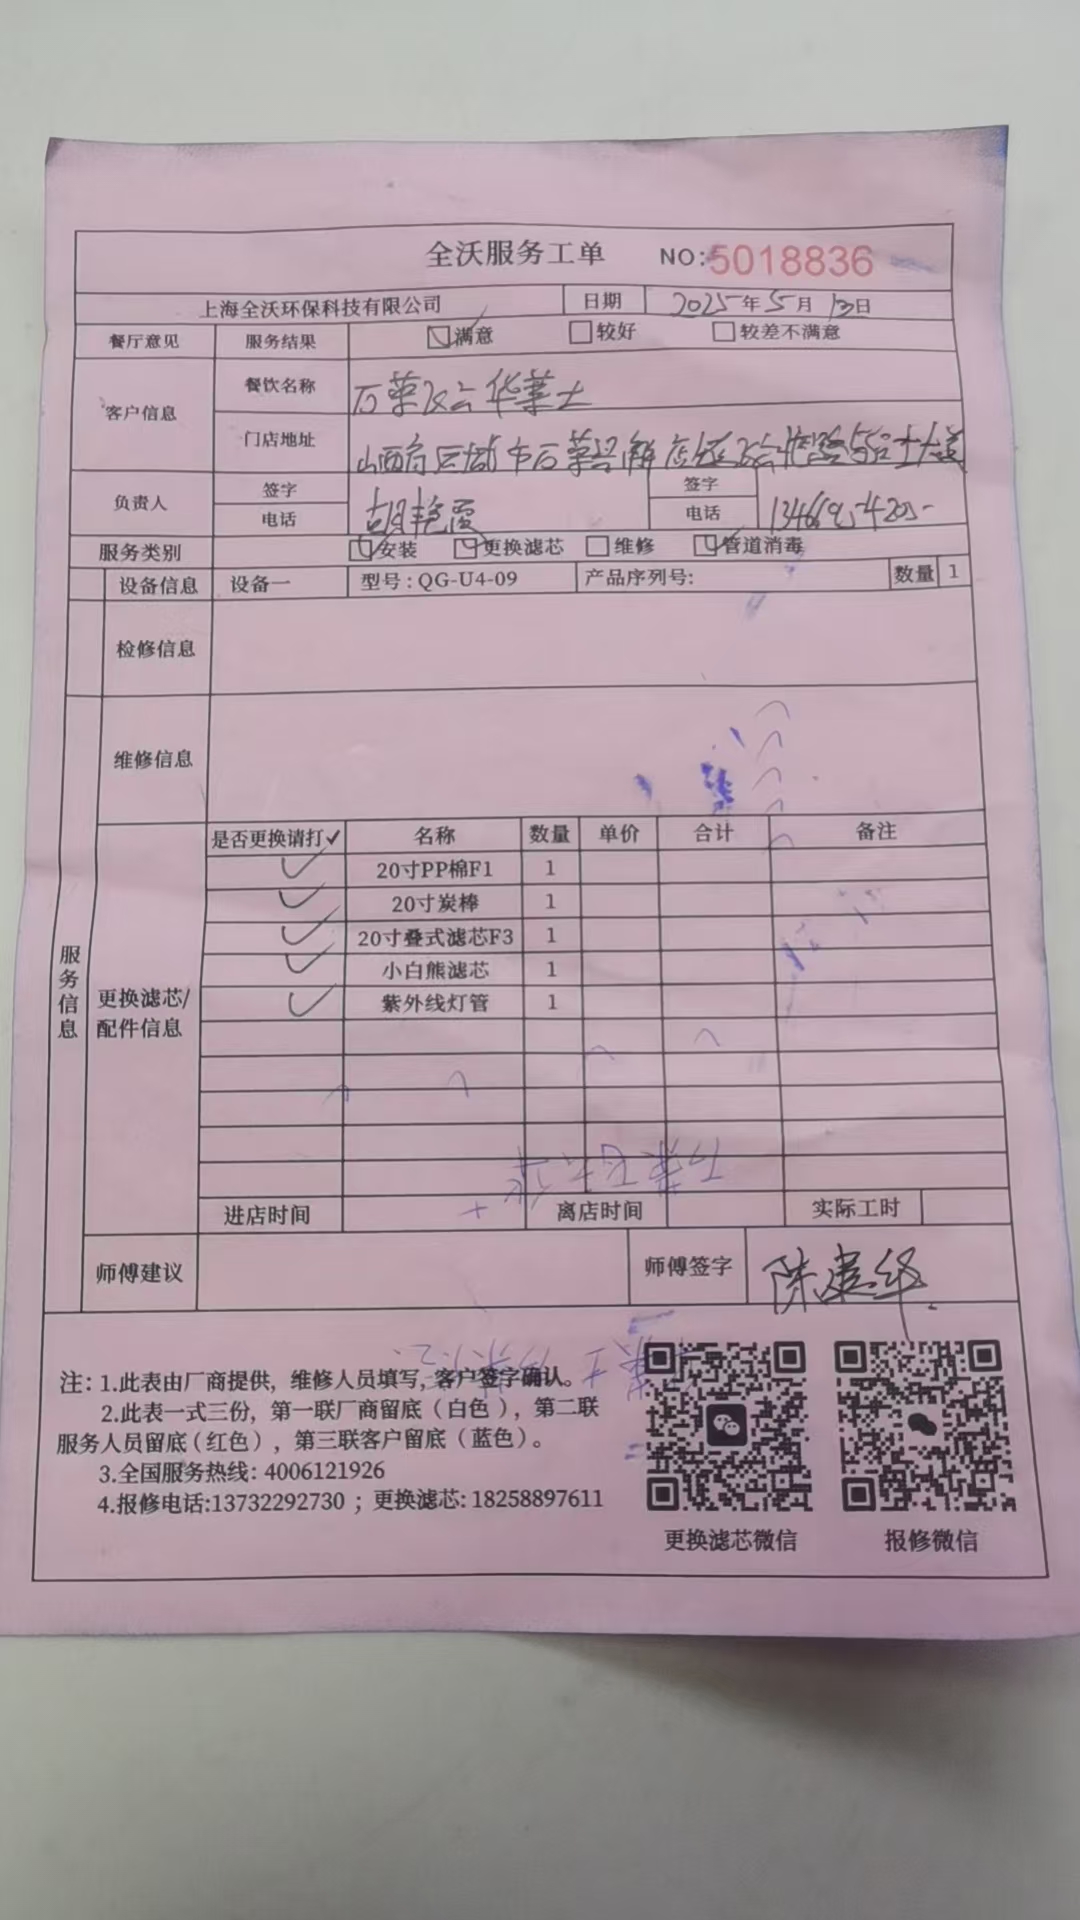 全沃服务工单 NO:5018836
上海全沃环保科技有限公司 日期 2025年5月13日
餐厅意见 服务结果 满意 较好 较差不满意
客户信息 餐饮名称 万荣 华莱士
门店地址 山西省 市万荣县解店镇 与后土大道
负责人 签字 胡艳霞 签字
电话 电话
服务类别 安装 更换滤芯 维修 管道消毒
设备信息 设备一 型号:QG-U4-09 产品序列号: 数量 1
检修信息
维修信息
服务信息
更换滤芯/配件信息
是否更换请打✓ 名称 数量 单价 合计 备注
✓ 20寸PP棉F1 1
✓ 20寸炭棒 1
✓ 20寸叠式滤芯F3 1
✓ 小白熊滤芯 1
✓ 紫外线灯管 1
进店时间 离店时间 实际工时
师傅建议 师傅签字 陈建华
注:1.此表由厂商提供,维修人员填写,客户签字确认。
2.此表一式三份,第一联厂商留底(白色),第二联
服务人员留底(红色),第三联客户留底(蓝色)。
3.全国服务热线:4006121926
4.报修电话:13732292730;更换滤芯:18258897611
更换滤芯微信 报修微信